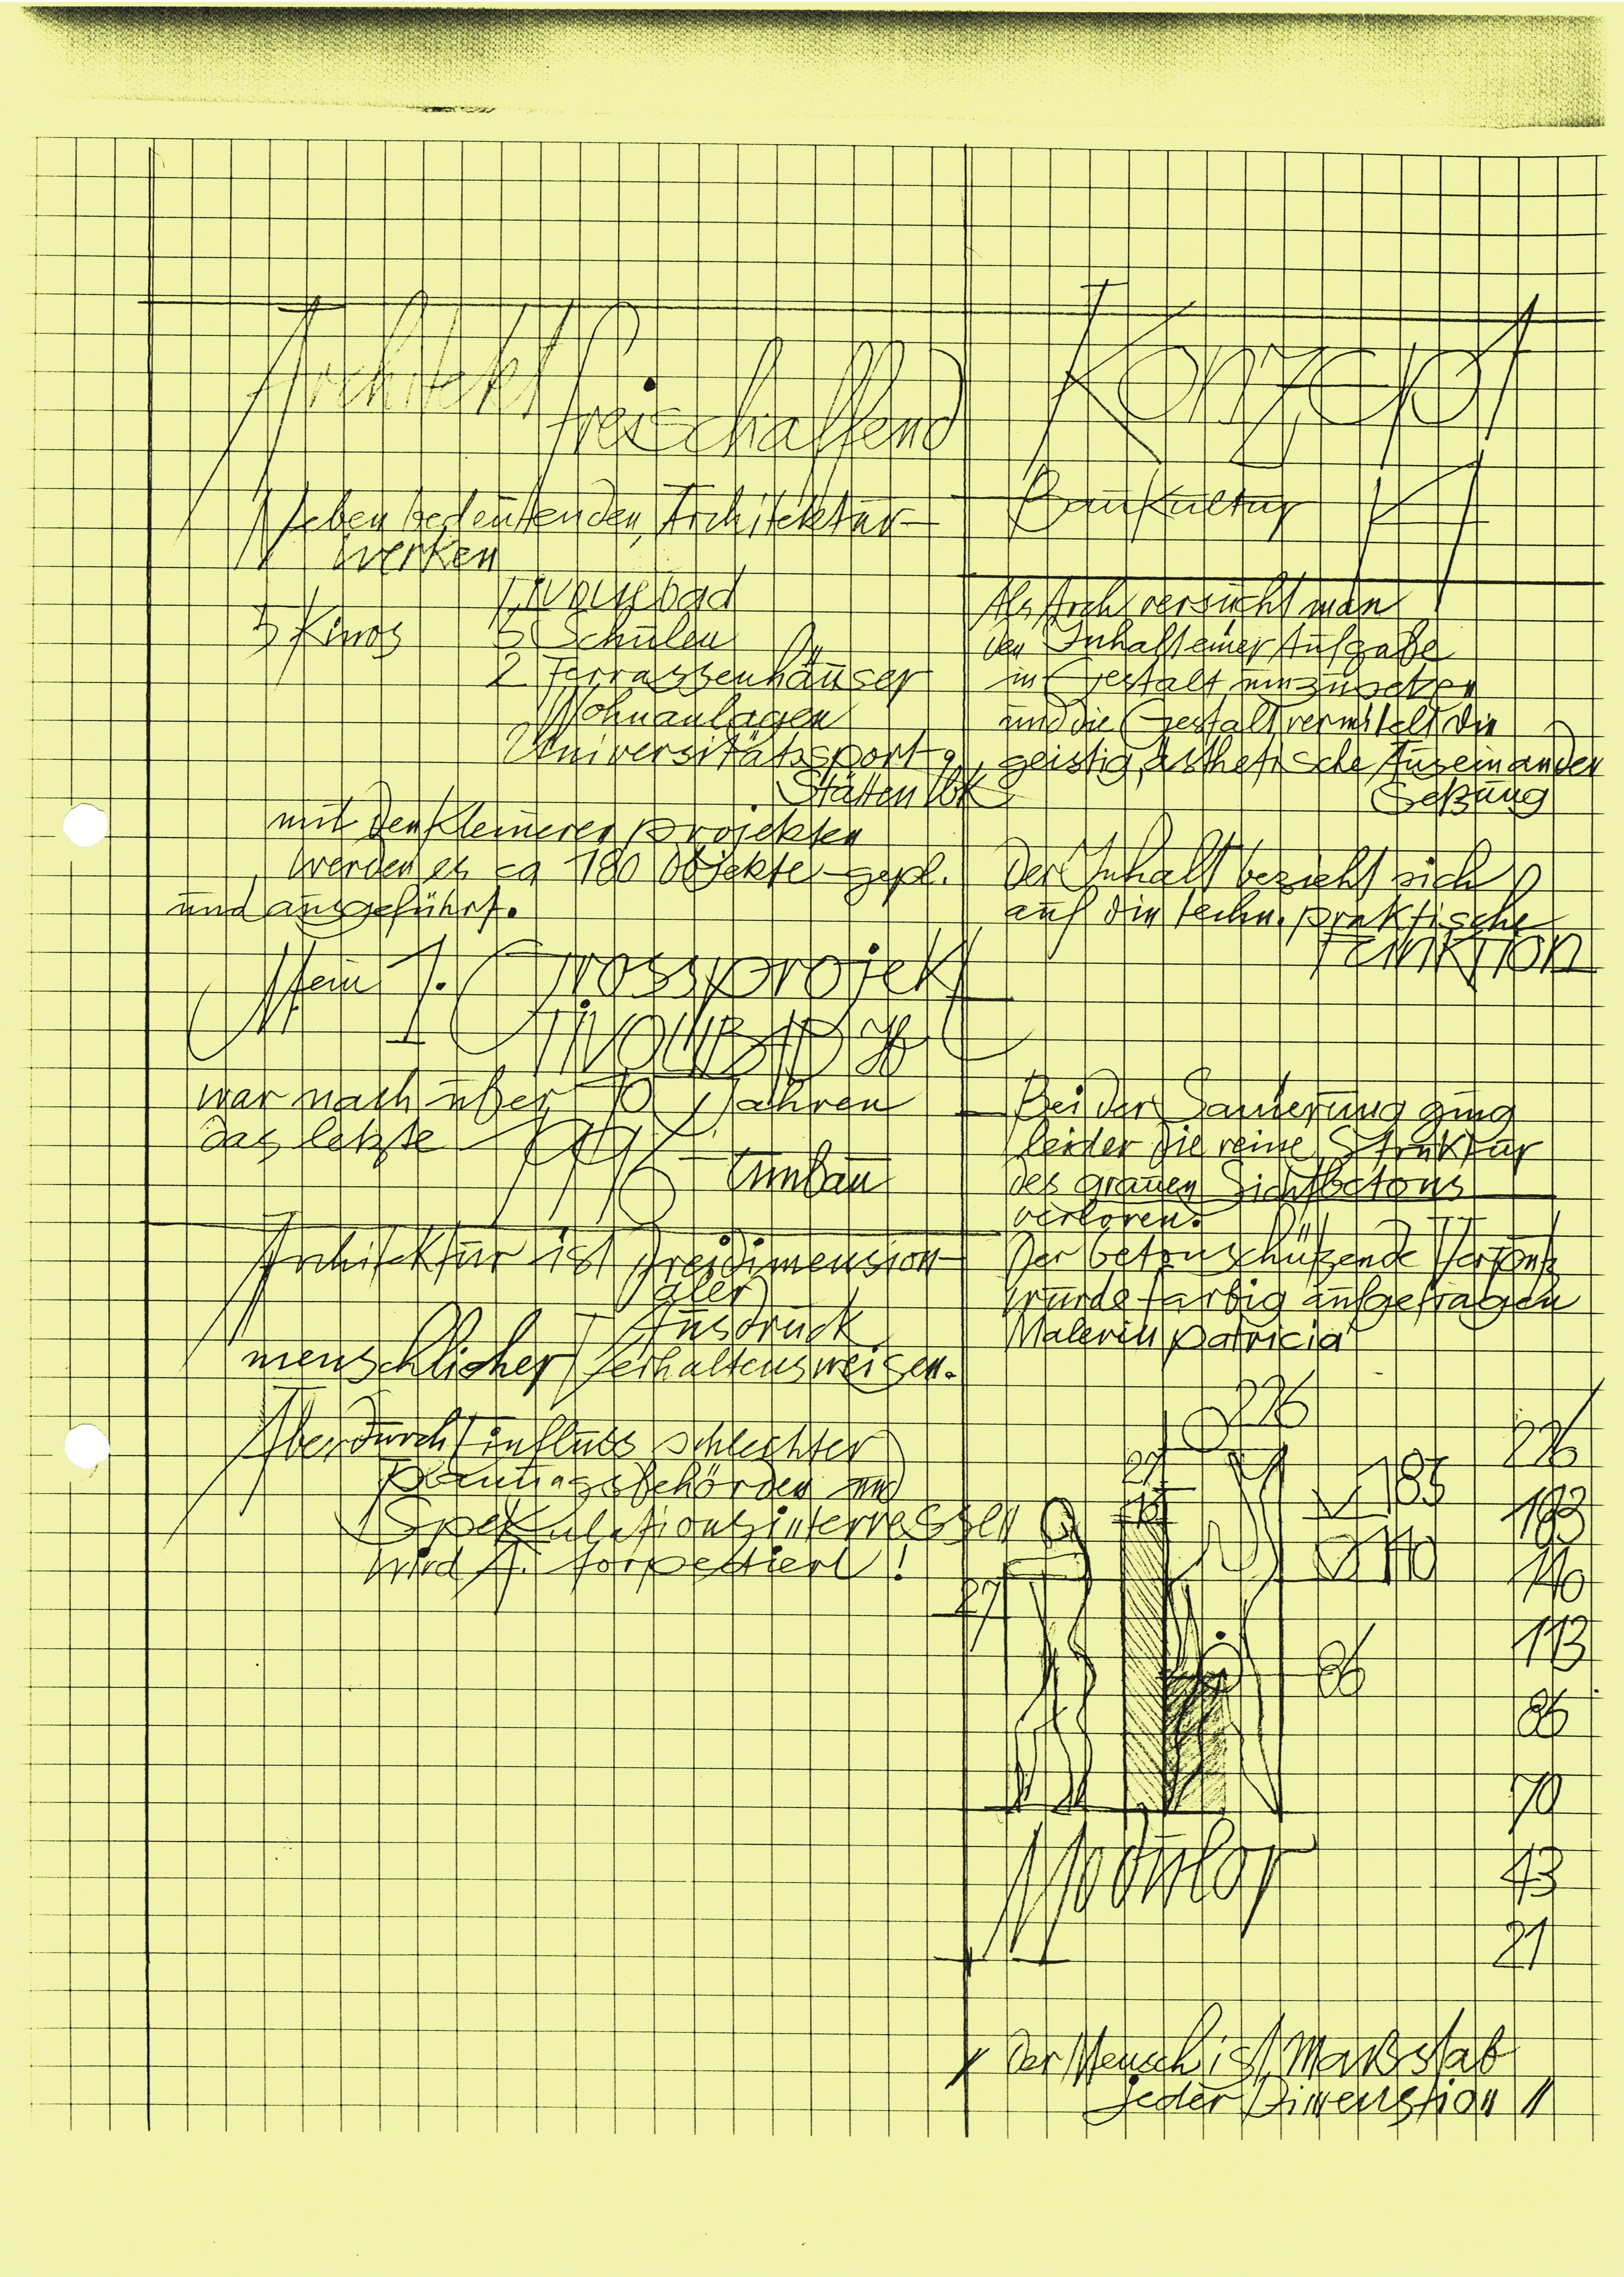 Architekt freischaffend
Neben bedeutenden Architektur-
werken
Tivolibad
5 Kinos 5 Schulen
2 Terrassenhäuser
Wohnanlagen
Universitätssport-
Stätten Ibk
mit den kleineren projekten
werden es ca 180 Objekte gepl.
und ausgeführt.
Mein 1. Grossprojekt
TIVOLIBAD
war nach über Jahren
das letzte 1996 - Umbau
Architektur ist dreidimension-
aler
Ausdruck
menschlicher Verhaltensweisen.
Aber durch Einfluss schlechter
planungsbehörden und
Spekulationsinterressen
wird A. torpediert !
Konzept
Baukultur
Als Arch versucht man
den Inhalt einer Aufgabe
in Gestalt umzusetzen
und die Gestalt vermittelt die
geistig, ästhetische Auseinander
Setzung
Der Inhalt bezieht sich
auf die techn. praktische
FUNKTION
Bei der Sanierung ging
leider die reine Struktur
des grauen Sichtbetons
verloren.
Der betonschützende Verputz
wurde farbig aufgetragen
Malerin patricia
226
226
27
183
183
140
140
27
113
86
86
70
43
21
Modulor
" Der Mensch ist Maßstab
jeder Dimenstion "